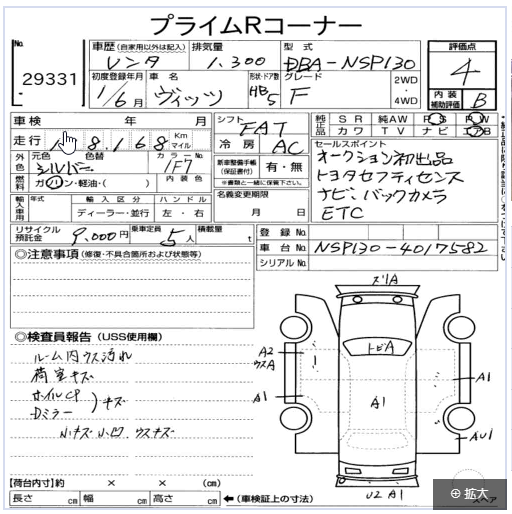 プライムRコーナー
No.
29331
車歴 (自家用以外は記入) 排気量 型式
レンタ 1,300 DBA-NSP130
初度登録年月 車名 形状・ドア数 グレード 2WD・4WD
1/6月 ヴィッツ HB 5 F
評価点
4
内装補助評価 B
車検 年 月
走行 8,168 Km マイル
シフト FAT
冷房 AC
純正品 SR 純AW PS PW
カワ TV ナビ エアB
セールスポイント
オークション初出品
トヨタセフティセンス
ナビ、バックカメラ
ETC
外色 元色 色替 カラーNo.
シルバー 1F7
燃料 ガソリン・軽油・( ) 内装色
新車整備手帳(保証書付) 有・無
※書類と一緒に保管下さい。
輸入車用 年式 輸入区分 ハンドル
ディーラー・並行 左・右
名義変更期限
月 日
リサイクル預託金 9,000円 乗車定員 5人 積載量 t
登録No.
車台No. NSP130-4017582
シリアルNo.
◎注意事項 (修復・不具合箇所および状態等)
◎検査員報告 (USS使用欄)
ルーム内ウス汚れ
荷室キズ
ホイルCP
Dミラー
)キズ
小キズ小凹 ウスキズ
ズ1A
トビA
A2
ウスA
A1
A1
A1
AU1
U2 A1
【荷台内寸】約 × × (cm)
長さ cm 幅 cm 高さ cm ←(車検証上の寸法)
スペア
拡大